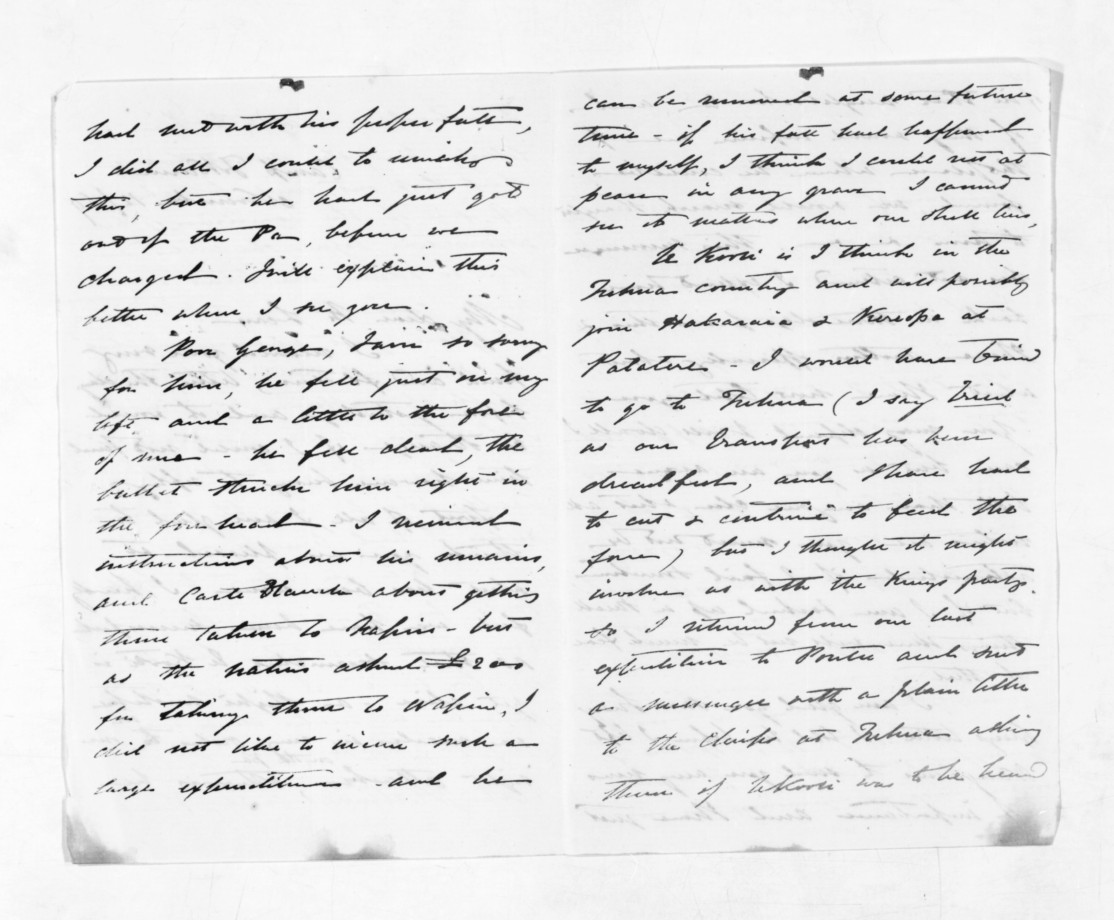 had met with his proper fate,
I did all I could to
this, but he had just got
out of the Pa, before we
charged. I will explain this
better when I see you.
Poor George, I am so sorry
for him, he fell just on my
left and a little to the fore
of me - he fell dead, the
bullet struck him right in
the forehead - I received
instructions about his remains,
and Carte Blanche about getting
them taken to Napier - but
as the natives asked £200
for taking them to Napier, I
did not like to incur such a
large expenditure - and he
can be removed at some future
time - if his fate had happened
to myself, I think I could rest at
peace in any grave I cannot
see it matters where one shell lies,
Te Kooti is I think in the
Tuhua country and will possibly
join Hakaraia & Kereopa at
Patatere - I would have tried
to go to Tuhua (I say tried
as our transport has been
dreadful, and I have had
to cut & contrive to feed the
force) but I thought it might
involve us with the Kings party.
So I returned from our last
expedition to Poutu and sent
a messenger with a plain letter
to the Chiefs at Tuhua asking
them if Te Kooti was to be head